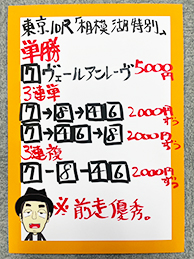 東京10R「相模湖特別」
単勝
7 ヴェールアンレーヴ 5000円
3連単
7→8→46 2000円ずつ
7→46→8 2000円ずつ
3連複
7-8-46 2000円ずつ
※前走優秀。